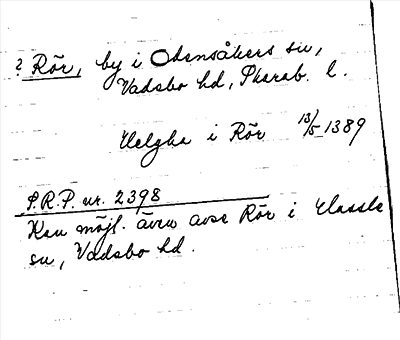 ? Rör, by i Odensåkers sn,
Vadsbo hd, Skarab. l.
Helgha i Rör 13/5 1389
S.R.P. nr. 2398
Kan möjl. även avse Rör i Hassle
sn, Vadsbo hd.